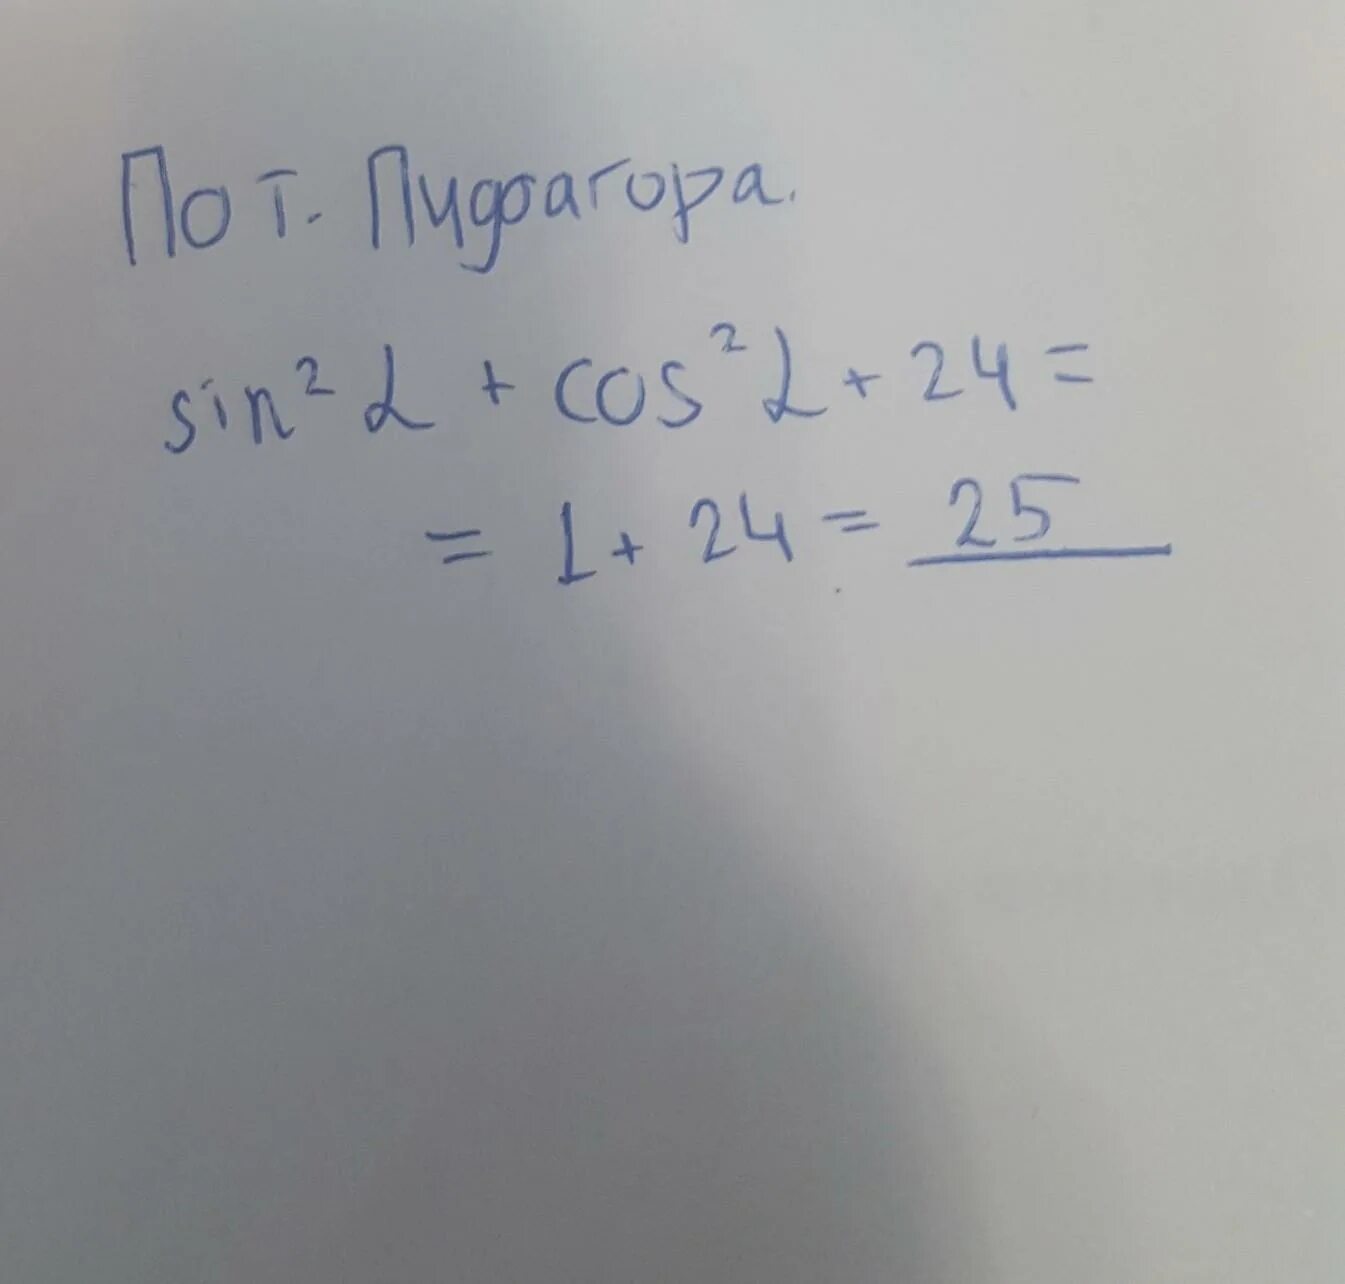 По т. Пидфагора.
sin² α + cos² α + 24 =
= 1 + 24 = 25